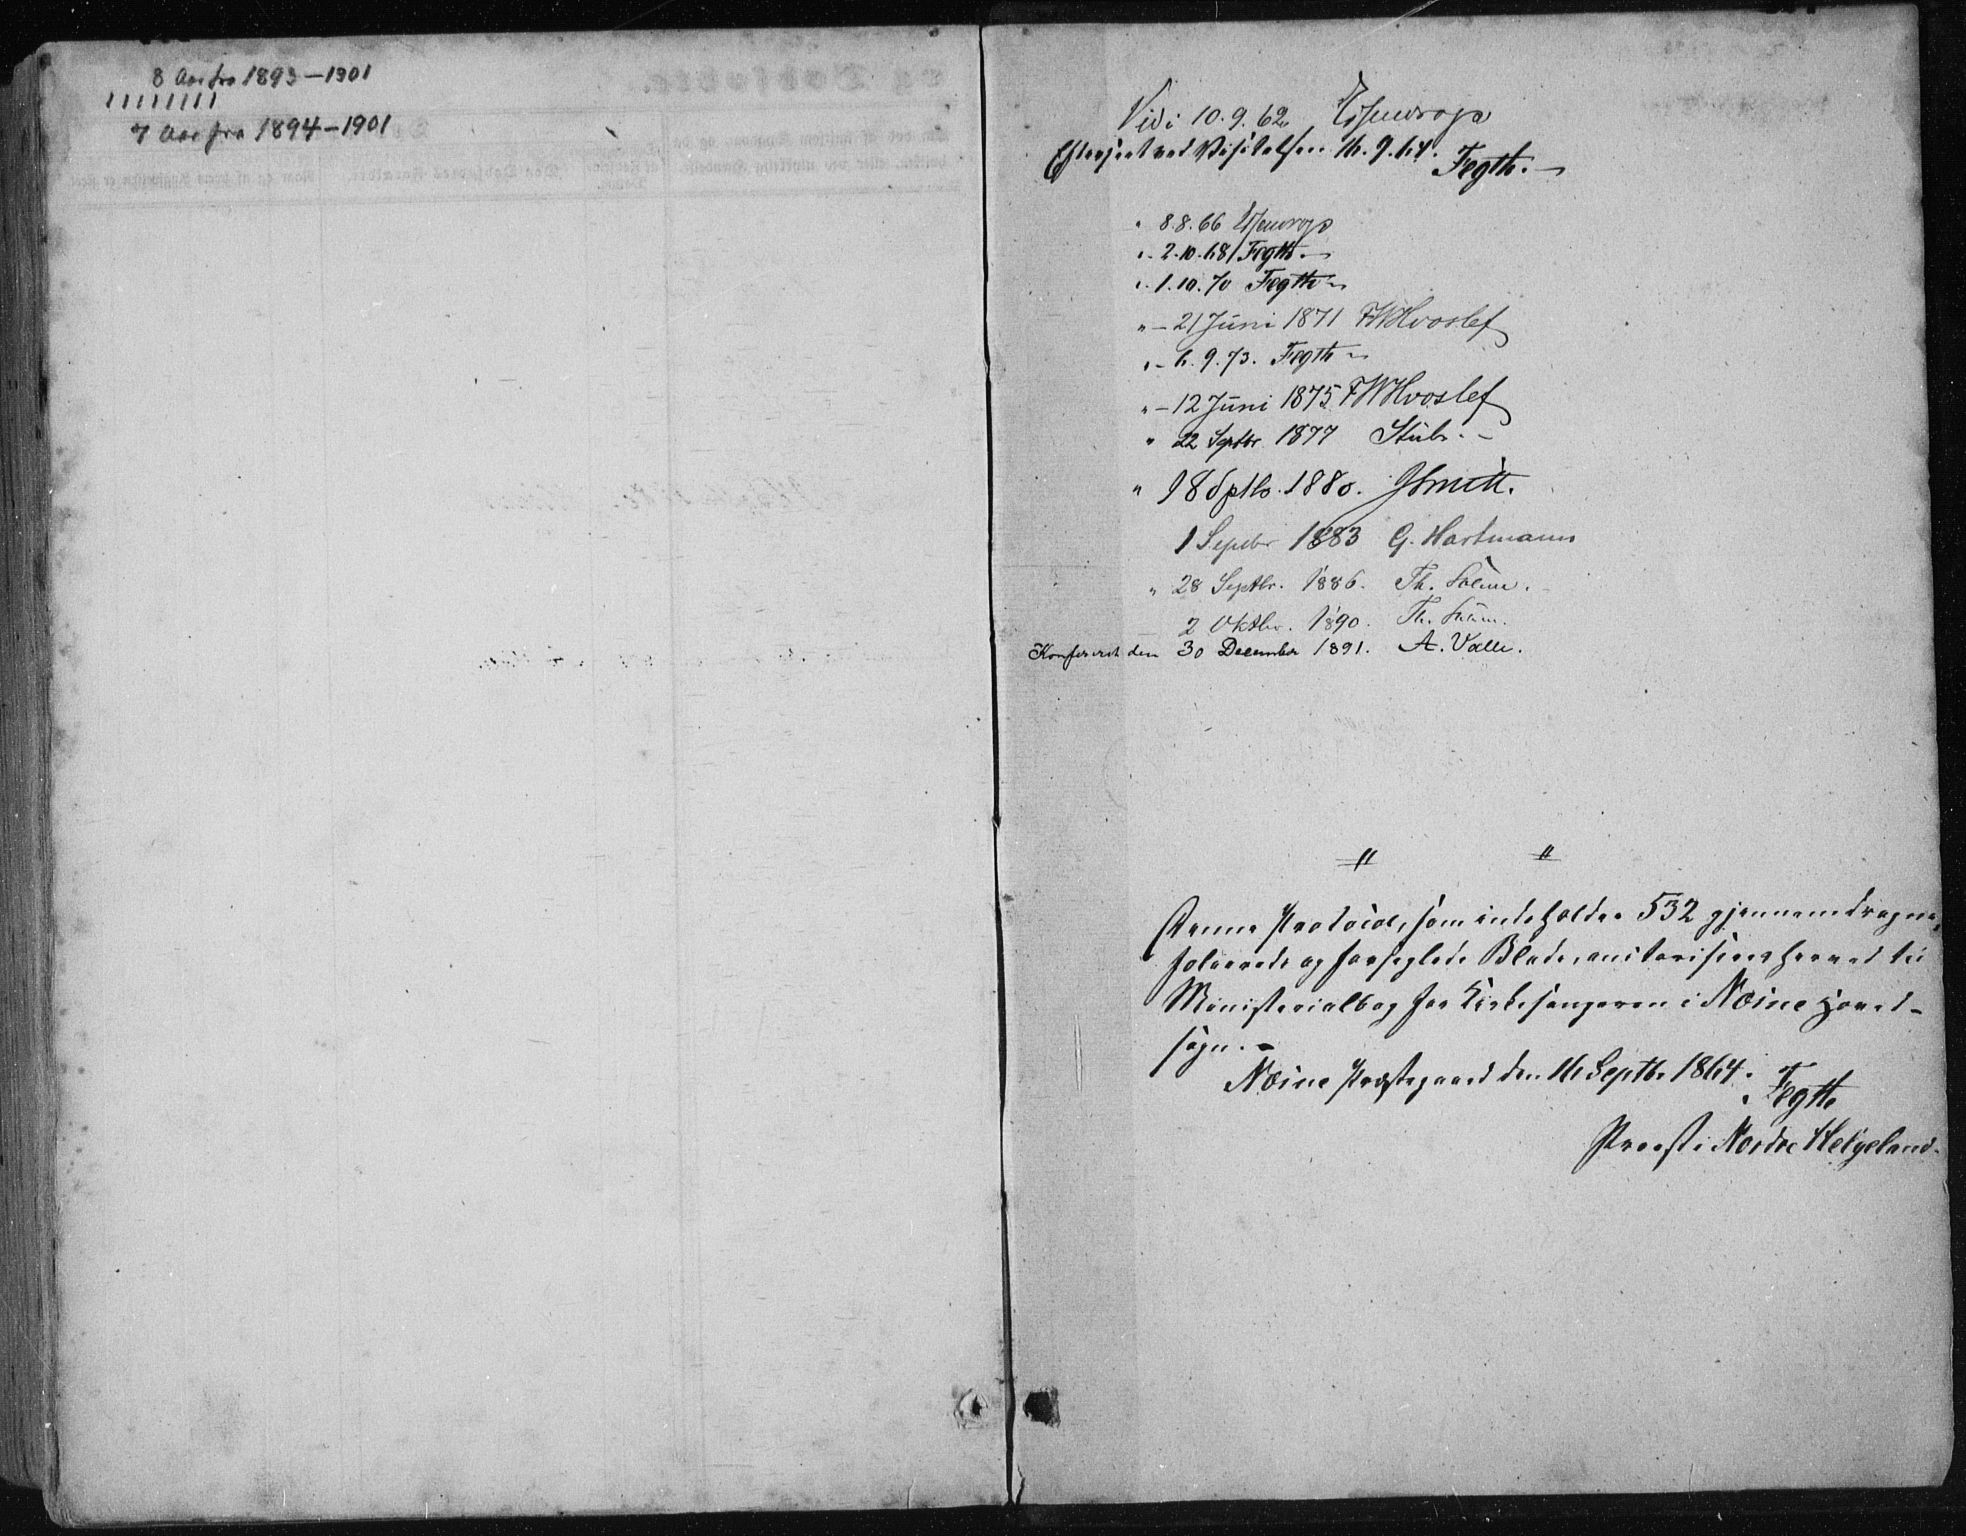 8 Aar fra 1893-1901
11111111
7 Aar fra 1894-1901
Vidi 10.9.62. Essendrop
Efterseet ved Visitatsen 16.9.64. Fegth.-
" 8.8.66 Essendrop
" - 2.10.68/Fegth.-
" 1.10.70 Fegth
" - 21 Juni 1871 FWHvoslef
" - 6.9.73. Fegth
" - 12 Juni 1875 FWHvoslef
" 22 Septbr 1877
" 18 Sptb. 1880. JSmitt.
1 Septbr 1883 G. Hartmann
" 28 Septbr. 1886. Th.
2 Oktbr. 1890. Th.
Konfereret den 30 December 1891. A.
Denne Protocol, som indeholder 532 gjennemdragne,
folierede og forseglede Blade, autoriseres herved til
Ministerialbog for Kirkesangeren i Næsne Hoved-
sogn.-
Næsne Præstegaard den 16 Septb. 1864.
Fegth
Provst i Nordre Helgeland.